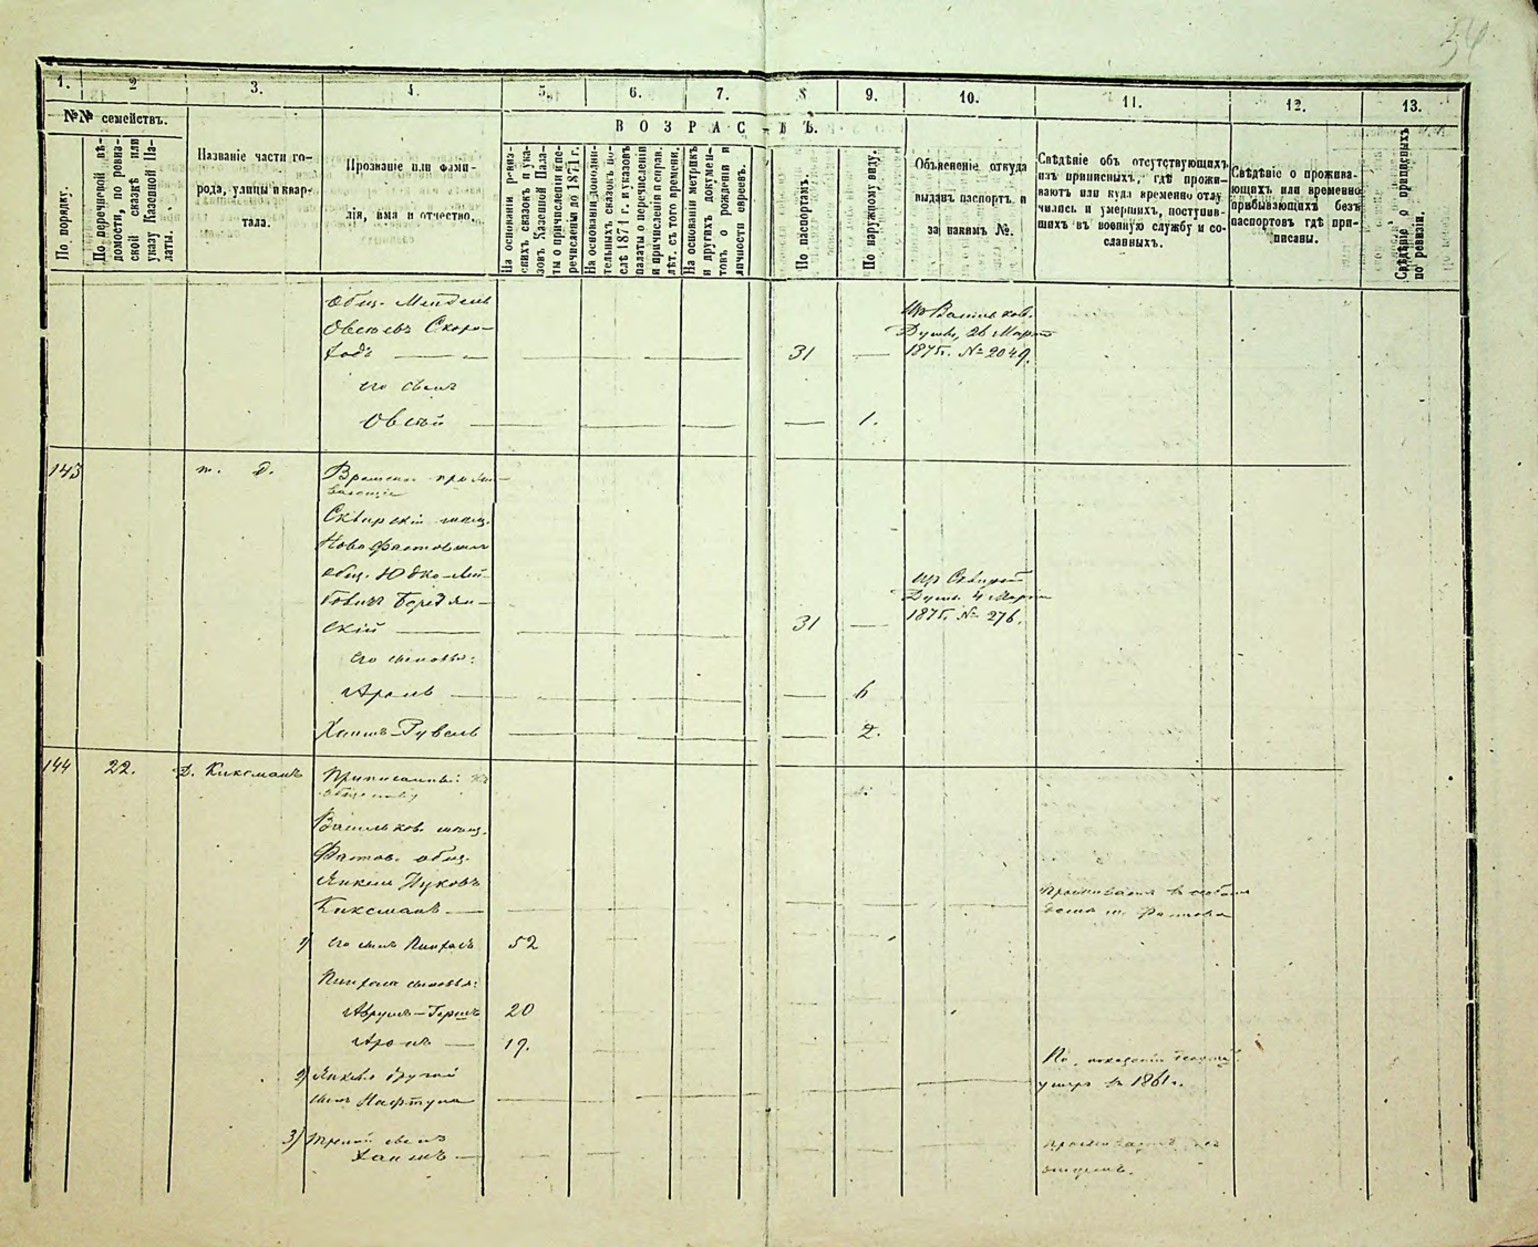 54
1.
2
3.
4.
5.
6.
7.
8
9.
10.
11.
12.
13.
№№ семействъ.
По порядку.
По перечневой вѣ-
домости, по ревиз-
ской сказкѣ или
указу Казенной Па-
латы.
Названіе части го-
рода, улицы и квар-
тала.
Прозваніе или фами-
лія, имя и отчество.
ВОЗРАСТЪ.
На основаніи реви-
скихъ сказокъ и ука-
зовъ Казенной Пала-
ты о причисленіи и пе-
речисленіи до 1871 г.
На основаніи дополни-
тельныхъ сказокъ по-
слѣ 1871 г. и указовъ
палаты о перечисленіи
и причисленіи и справ.
лѣт. съ того времени.
На основаніи метрикъ
и другихъ докумен-
товъ о рожденіи и
личности евреевъ.
По паспортамъ.
По наружному виду.
Объясненіе откуда
выданъ паспортъ и
за какимъ №.
Свѣдѣніе объ отсутствующихъ
изъ приписныхъ, гдѣ прожи-
ваютъ или куда временно отлу-
чились и умершихъ, поступив-
шихъ въ военную службу и со-
сланныхъ.
Свѣдѣніе о прожива-
ющихъ или временно
прибывающихъ безъ
паспортовъ гдѣ при-
писаны.
Свѣдѣніе о приписныхъ
по ревизіи.
общ. Мендель
Овсіевъ Скоро-
ходъ
31
1875г. № 2049.
его сынъ
Овсій
1.
143
т. д.
Временно прожи-
вающіе
Сквирскій мѣщ.
Новофастовскаго
общ. Юдко-Лей-
бовичъ Бердян-
скій
31
Думы 4 Марта
1875г. № 276.
его сыновья:
Аронъ
6
Хаимъ-Рувель
2.
144
22.
Д. Киксманъ
Приписанный къ
обществу
Васильков. мѣщ.
Фастов. общ.
Янкель Нуховъ
Киксманъ
Проживаетъ въ
м. Фастовѣ
1) его сынъ Пинхасъ
52
Пинхаса сыновья:
Аврумъ-Гершъ
20
Аронъ
19.
2) Янкеля другой
сынъ Нафтула
По показанію
умеръ въ 1861г.
3) третій сынъ
Хаимъ
проживаетъ